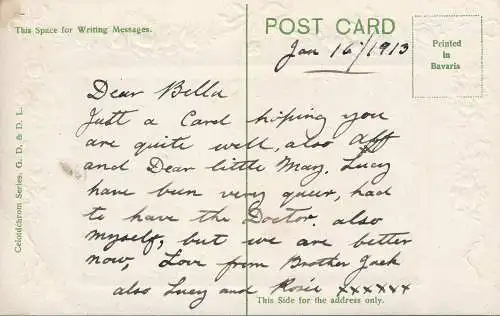 This Space for Writing Messages.
POST CARD
Printed
in
Bavaria
Jan 16/1913
Dear Bella
Just a Card hoping you
are quite well, also Alf
and Dear little May. Lucy
have been very queer, had
to have the Doctor. also
myself, but we are better
now, Love from Brother Jack
also Lucy and Rosie xxxxxx
This Side for the address only.
Celotdchrom Series. G. D. & D. L.